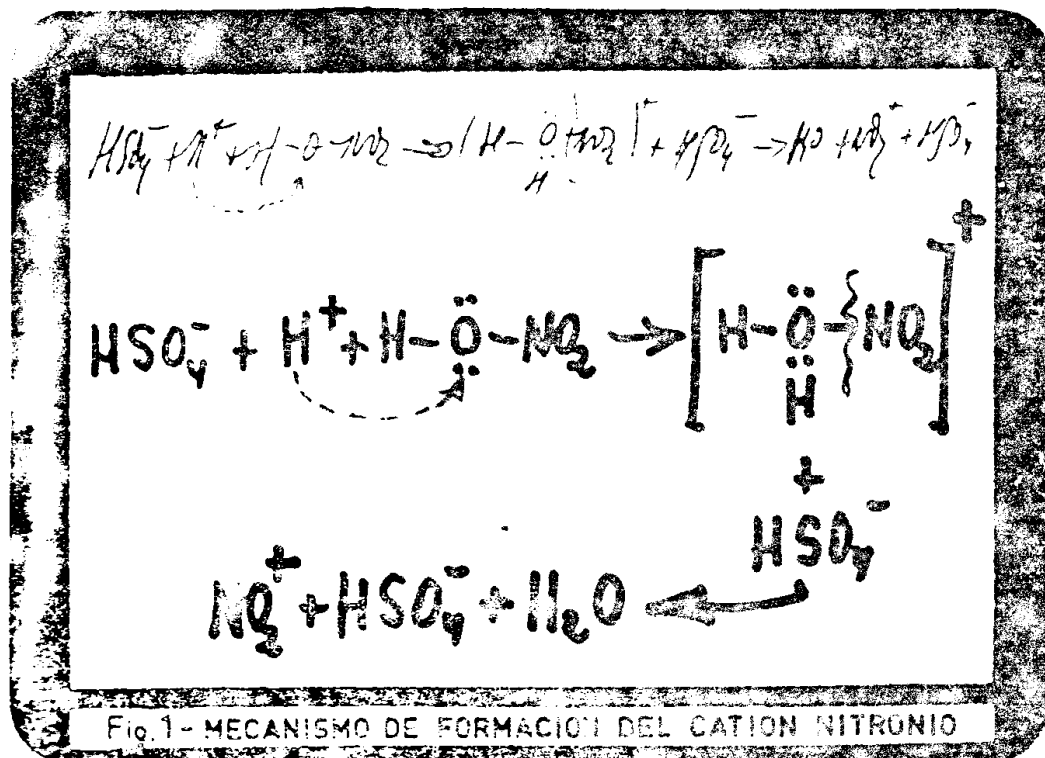 HSO₄⁻ + H⁺ + H-O-NO₂ → [H-Ö-NO₂]⁺ + HSO₄⁻ → H₂O + NO₂⁺ + HSO₄⁻
H
+
HSO₄⁻ + H⁺ + H-Ö-NO₂ → [H-Ö-NO₂]
H
+
HSO₄⁻
NO₂⁺ + HSO₄⁻ + H₂O ←
Fig. 1 - MECANISMO DE FORMACION DEL CATION NITRONIO